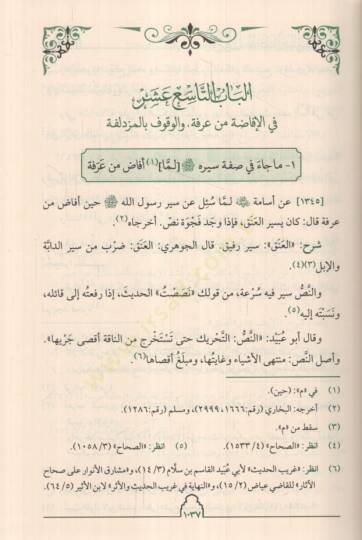 الباب التاسع عشر
في الإفاضة من عرفة، والوقوف بالمزدلفة
١- ما جاء في صفة سيره ﷺ [لمَّا](١) أفاض من عَرَفة
[١٣٤٥] عن أسامة ﵁ لـمَّا سُئِل عن سير رسول الله ﷺ حين أفاض من
عرفة قال: كان يسير العَنَق، فإذا وجد فَجْوَة نصّ. أخرجاه(٢).
شرح: «العَنَق»: سير رفيق. قال الجوهري: العَنَق: ضرْب من سير الدابَّة
والإبل(٣)(٤).
والنَّصُّ سير فيه سُرعة، من قولك «نَصَصْتُ» الحديثَ، إذا رفعتَه إلى قائله،
ونَسَبْتَه إليه(٥).
وقال أبو عُبَيْد: «النَّصُّ: التَّحريك حتى تَسْتَخرج من الناقة أقصى جَرْيها».
وأصل النَّص: منتهى الأشياء وغايتُها، ومبلغُ أقصاها(٦).
(١) في «م»: (حين).
(٢) أخرجه: البخاري (رقم: ١٦٦٦، ٢٩٩٩)، ومسلم (رقم: ١٢٨٦).
(٣) سقط من «م».
(٤) انظر: «الصحاح» (٤/ ١٥٣٣). (٥) انظر: «الصحاح» (٣/ ١٠٥٨).
(٦) انظر: «غريب الحديث» لأبي عُبَيد القاسم بن سلَّام (٣/ ١٤)، و«مشارق الأنوار على صحاح
الآثار» للقاضي عياض (٢/ ١٥)، و«النهاية في غريب الحديث والأثر» لابن الأثير (٥/ ٦٤).
١٠٣٧